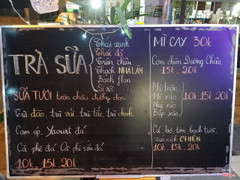 TRÀ SỮA
Thái xanh
Thái đỏ
Trân châu
Thạch NHÀ LÀM
Bánh flan
Sỉ rẻ
SỮA TƯƠI trân châu đường đen
Trà đào, trà vải, trà tắc, trà chanh
Cam ép, Yaourt đá
Cà phê đá, Cà phê sữa đá
10k, 15k, 20k
MÌ CAY 30k
Cơm chiên Dương Châu
15k, 20k
Mì trộn
Nui xào
Bắp xào
10k, 15k, 20k
Cá, bò, tôm, bạch tuộc,
CHIÊN
10k, 15k, 20k